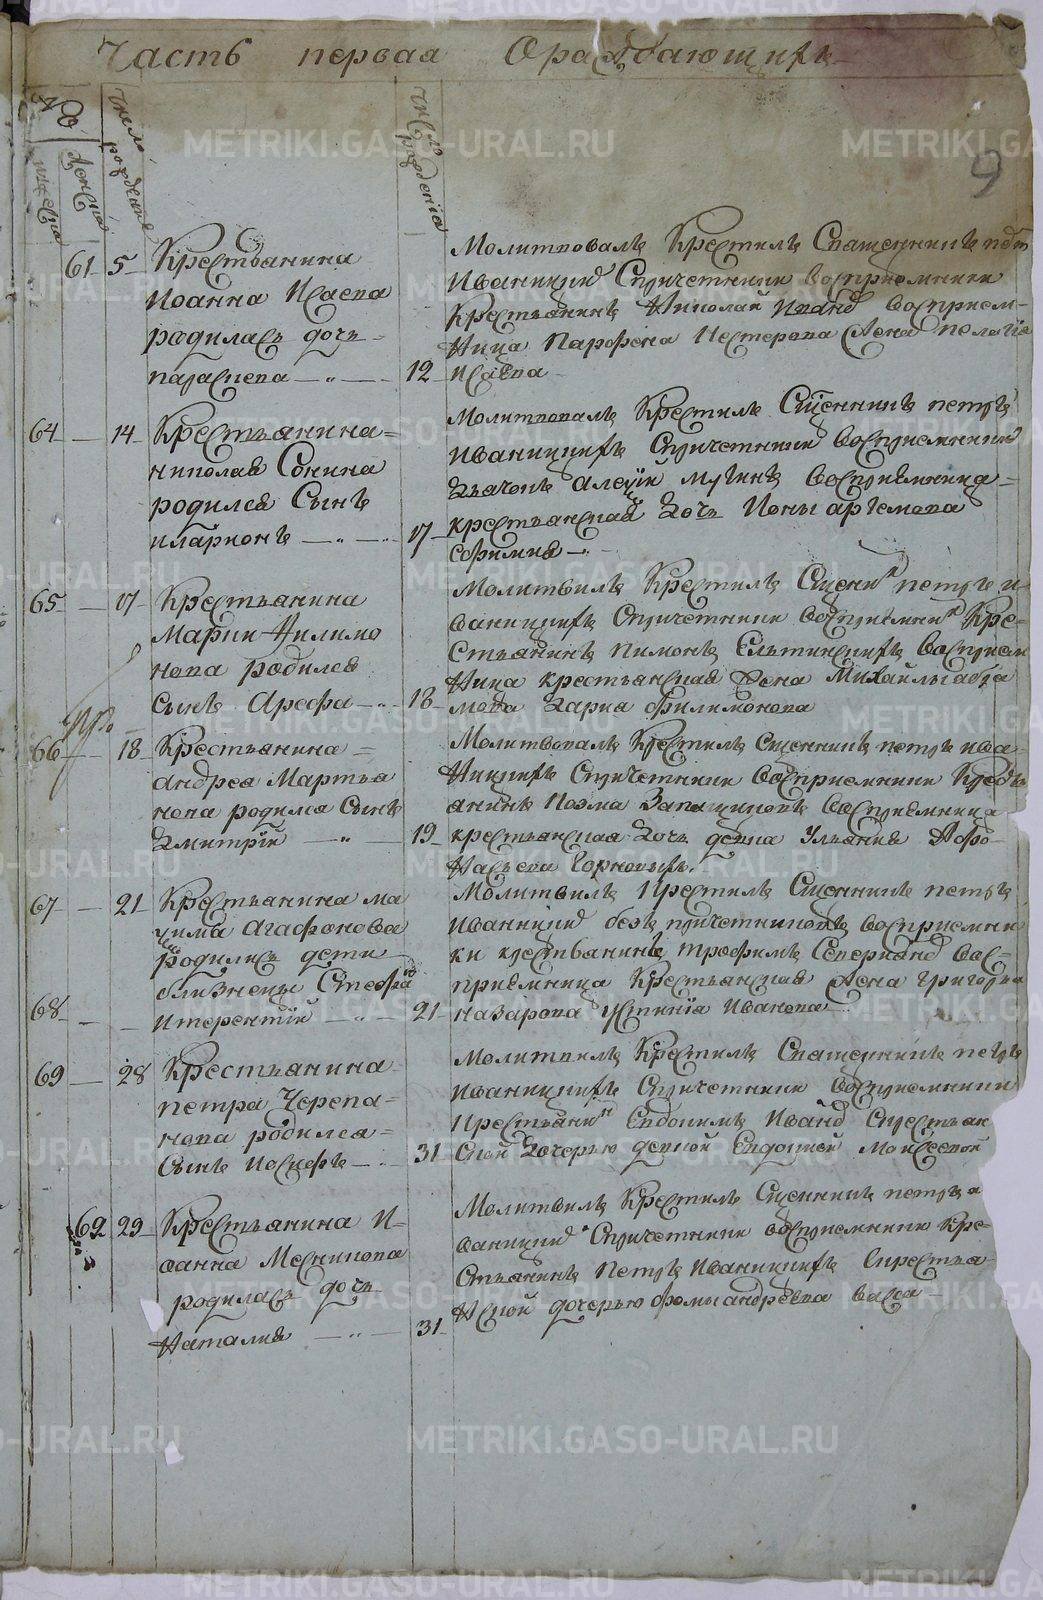 Часть первая О раждающихъ
9
№
мужеска
женска
число рожденія
число крещенія
61 5 Крестьянина
Иоанна Исаева
родилась дочь
параскева 12
Молитвовалъ Крестилъ Священникъ петръ
Иваницкий Спричетники восприемники
Крестьянинъ Николай восприем-
ница Парфена Нестерова Жена пелагия
Исаева
64 14 Крестьянина
николая Сонина
родился Сынъ
иларионъ 17
Молитвовалъ Крестилъ Сщенникъ петръ
иваницкихъ Спричетники восприемники
дьячекъ алеѯий восприемница
крестьянская дочь Ионы артемова
софимия
65 17 Крестьянина
Марки Филимо
нова родился
сынъ Арефа 18
Молитвилъ Крестилъ Сщенник петръ и
ваницкихъ Спричетники восприемник Кре-
стьянинъ пимонъ восприем
ница крестьянская Жена Михайлы абра
мова дарья филимонова
66 18 Крестьянина
андрея Мартья
нова родился Сынъ
Дмитрій 19
Молитвовалъ Крестилъ Сщенникъ петръ ива
ницкихъ Спричетники восприемники Кресть
анинъ Козма восприемница
крестьянская дочь девка Ульяния Афо
насьева Горновыхъ.
67 21 Крестьянина ма
ѯима Агафонова
родились дети
близнецы Стефа
68 итерентій 21
Молитвилъ Крестилъ Сщенникъ петръ
Иваницкий безъ причетниковъ восприемни
ки крестьянинъ трофимъ вос-
приемница Крестьянская жена григорья
назарова устинія Иванова
69 28 Крестьянина
петра Черепа-
нова родился
Сынъ Иосифъ 31
Молитвилъ Крестилъ Священникъ петръ
иваницкихъ Спричетники восприемники
Крестьянин Евдокимъ Скрестьян
ской дочерью девкой Евдокией Моисеевой
62 29 Крестьянина И-
оанна Месникова
родилась дочь
Наталия 31
Молитвилъ Крестилъ Сщенникъ петръ и
ваницкий Спричетники восприемники кре-
стьянинъ Петръ Иваницкихъ Скрестья
нской дочерью фомы андреева васса
METRIKI.GASO-URAL.RU